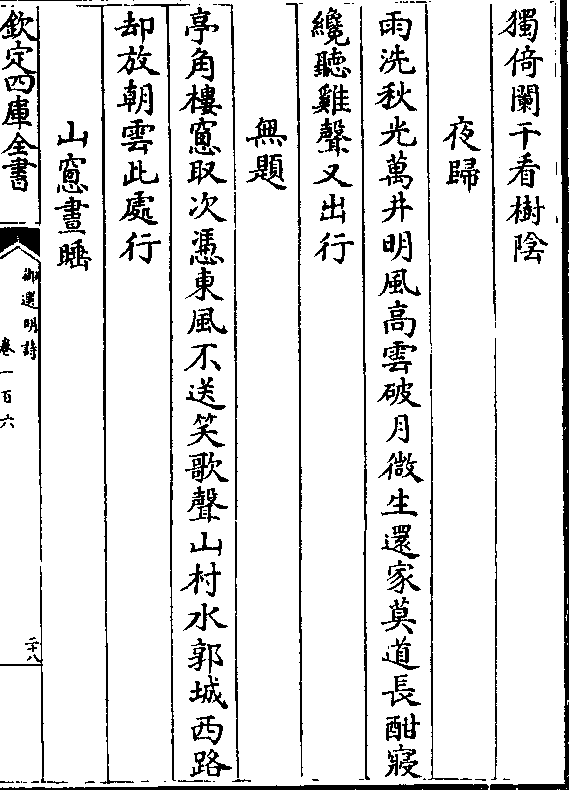 獨倚闌干看樹陰
夜歸
雨洗秋光萬井明風高雲破月微生還家莫道長酣寢
纔聽雞聲又出行
無題
亭角樓窻取次憑東風不送笑歌聲山村水郭城西路
却放朝雲此處行
山窻晝睡
欽定四庫全書
御選明詩
卷一百六
二十八